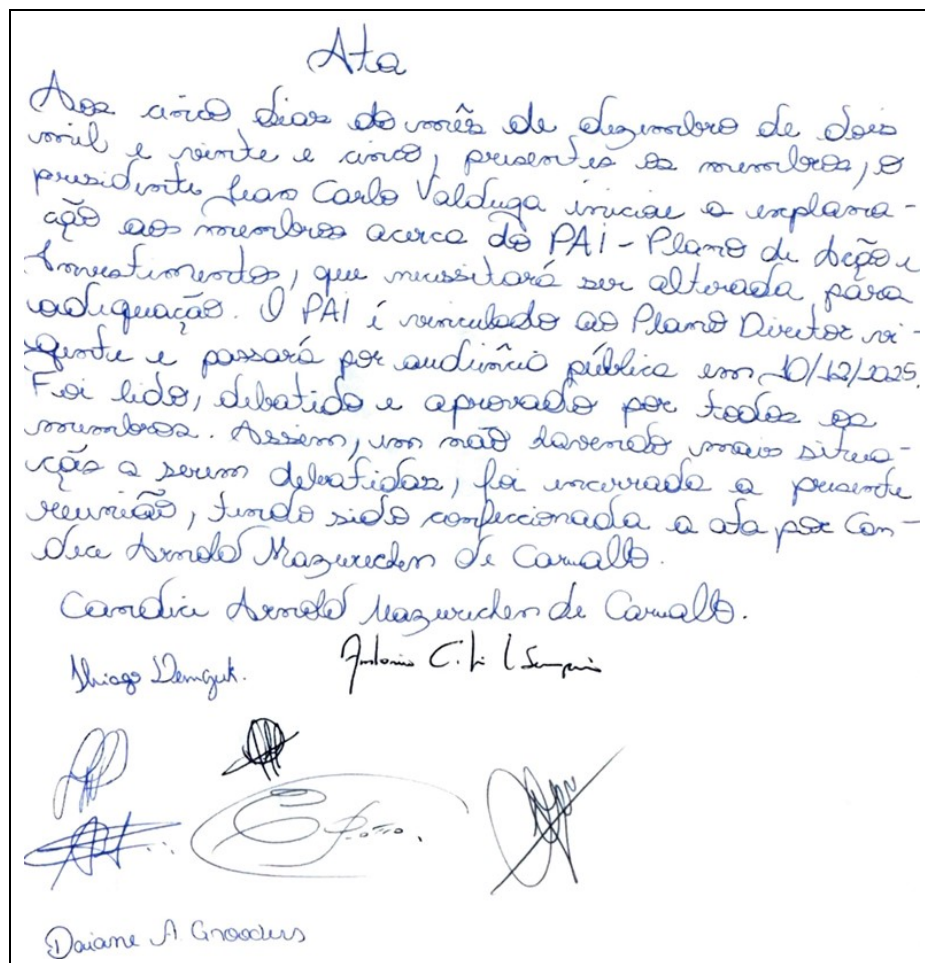 Ata
Aos cinco dias do mês de dezembro de dois
mil e vinte e cinco, presentes os membros, o
presidente Jean Carlo Valduga iniciae a explana-
ação aos membros acerca do PAI - Plano de Ação e
Investimentos, que necessitará ser alterada para
adequação. O PAI é vinculado ao Plano Diretor vi-
gente e passará por audiência pública em 10/12/2025.
Foi lido, debatido e aprovado por todos os
membros. Assim, em não havendo mais situa-
ções a serem debatidas, foi encerrada a presente
reunião, tendo sido confeccionada a ata por Can-
dice Arnold Mazurechen de Carvalho.
Candice Arnold Mazurechen de Carvalho.
Thiago Demczuk.
Antonio C.
Daiane A